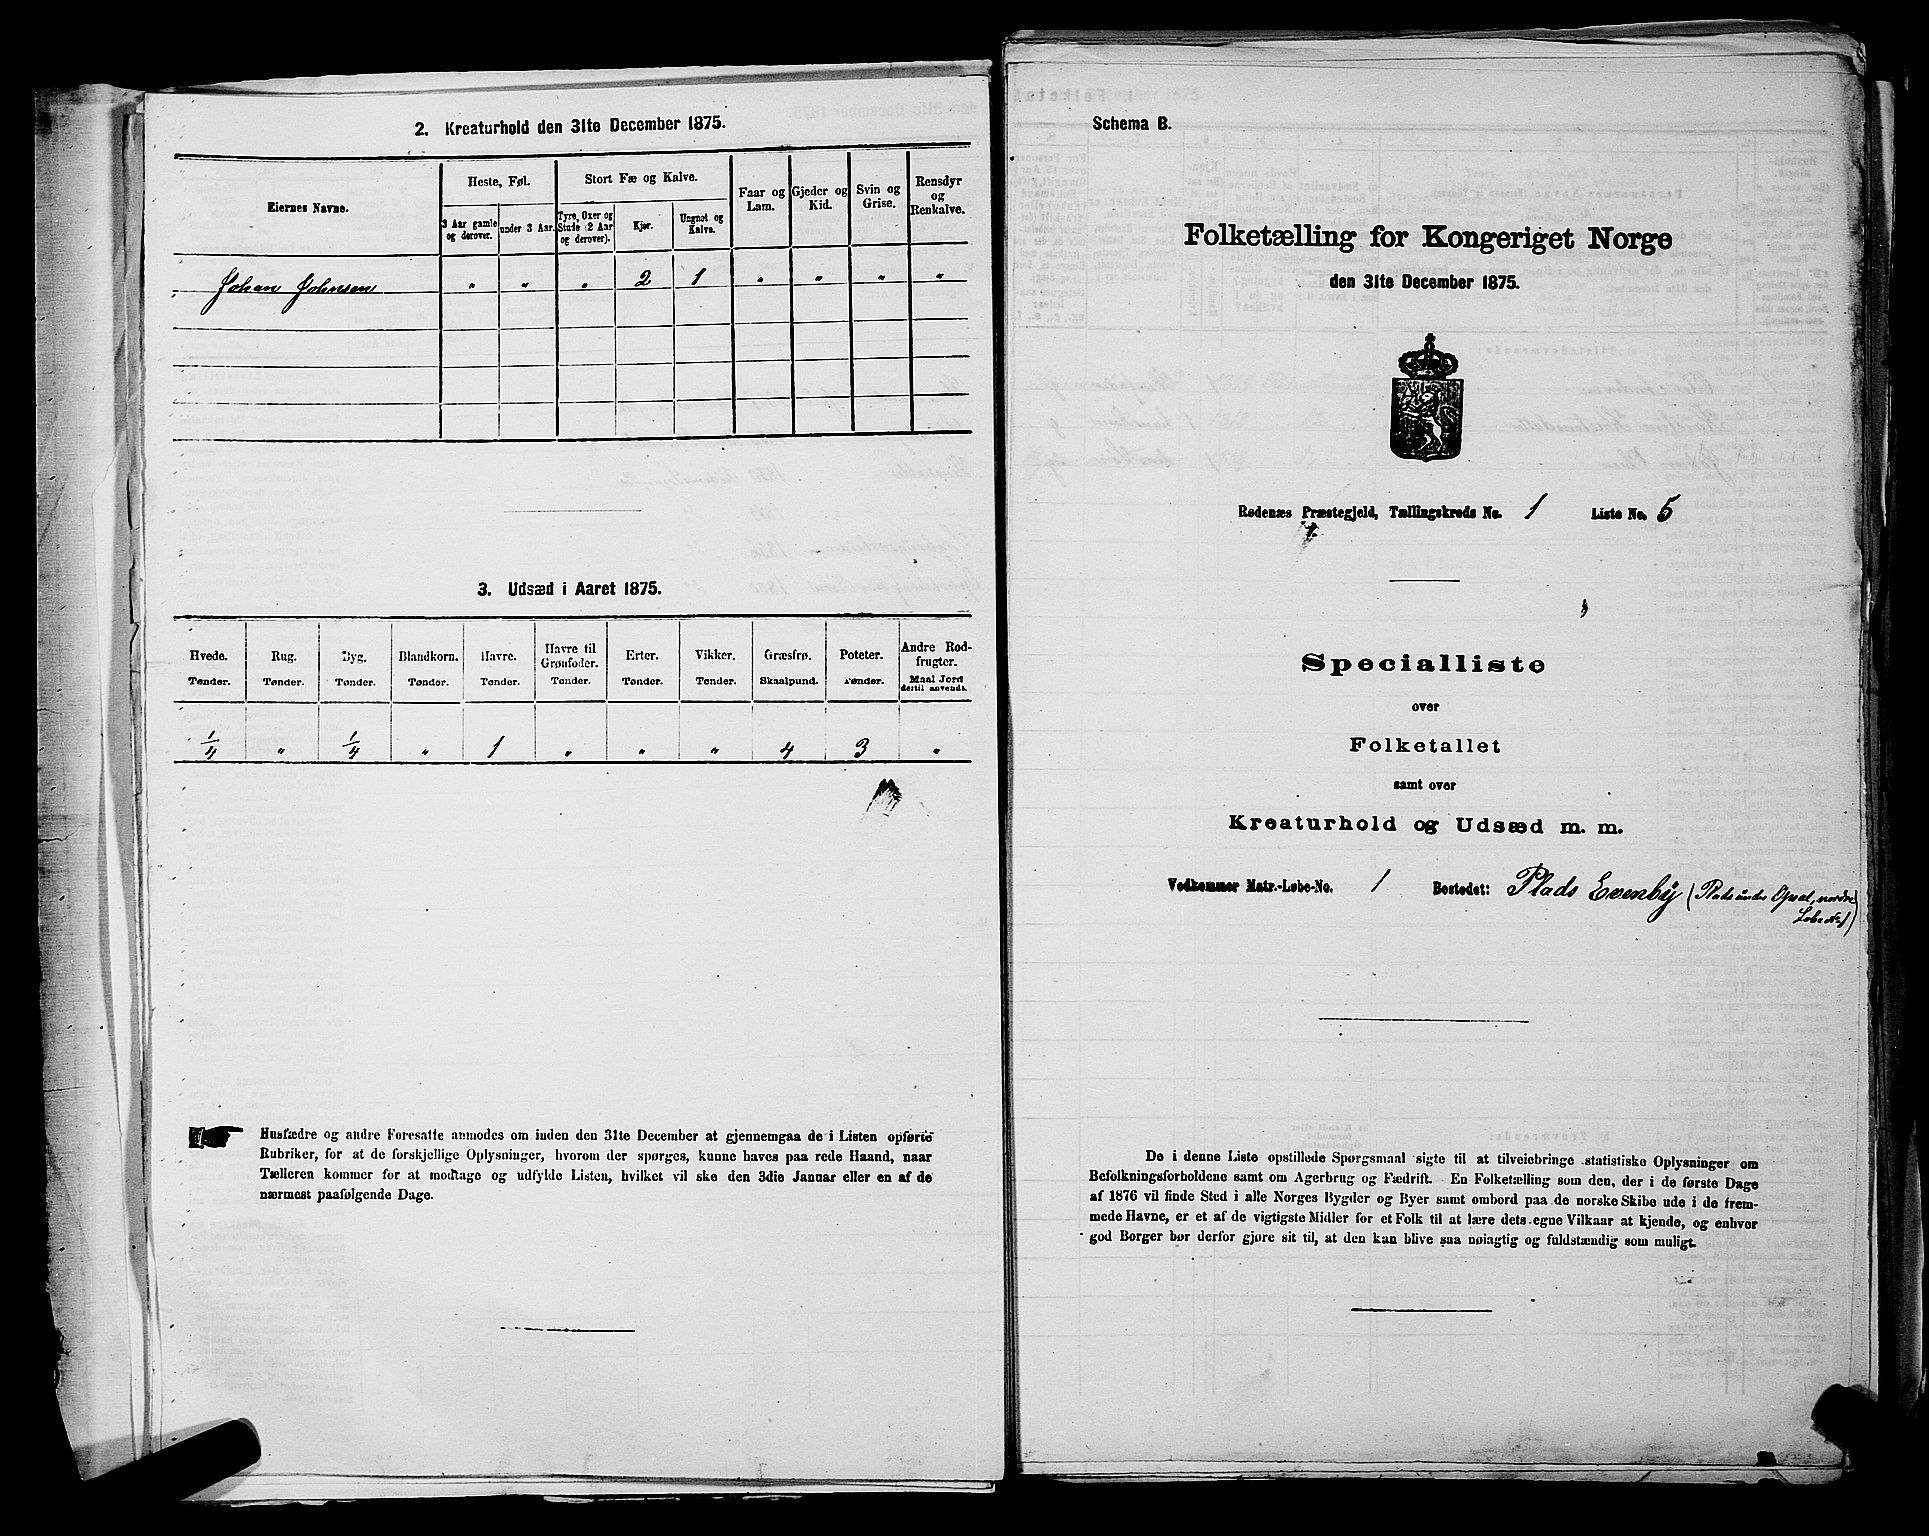 2. Kreaturhold den 31te December 1875.
Eiernes Navne.
Heste, Føl.
Stort Fæ og Kalve.
Faar og Lam.
Gjeder og Kid.
Svin og Grise.
Rensdyr og Renkalve.
3 Aar gamle og derover.
under 3 Aar.
Tyre, Oxer og Stude (2 Aar og derover).
Kjør.
Ungnøt og Kalve.
Johan Johnsen " " " 2 1 " " " "
3. Udsæd i Aaret 1875.
Hvede. Rug. Byg. Blandkorn. Havre. Havre til Grønfoder. Erter. Vikker. Græsfrø. Poteter. Andre Rodfrugter.
Tønder. Tønder. Tønder. Tønder. Tønder. Tønder. Tønder. Tønder. Skaalpund. Tønder. Maal Jord dertil anvendt.
1/4 " 1/4 " 1 " " " 4 3 "
Husfædre og andre Foresatte anmodes om inden den 31te December at gjennemgaa de i Listen opførte
Rubriker, for at de forskjellige Oplysninger, hvorom der spørges, kunne haves paa rede Haand, naar
Tælleren kommer for at modtage og udfylde Listen, hvilket vil ske den 3die Januar eller en af de
nærmest paafølgende Dage.
Schema B.
Folketælling for Kongeriget Norge
den 31te December 1875.
Rødenæs Præstegjeld, Tællingskreds No. 1 Liste No. 5
Specialliste
over
Folketallet
samt over
Kreaturhold og Udsæd m. m.
Vedkommer Matr.-Løbe-No. 1 Bostedet: Plads Evenby (Plads under Opsal, nordre
Løbe No 1)
De i denne Liste opstillede Spørgsmaal sigte til at tilveiebringe statistiske Oplysninger om
Befolkningsforholdene samt om Agerbrug og Fædrift. En Folketælling som den, der i de første Dage
af 1876 vil finde Sted i alle Norges Bygder og Byer samt ombord paa de norske Skibe ude i de frem-
mede Havne, er et af de vigtigste Midler for et Folk til at lære dets egne Vilkaar at kjende, og enhver
god Borger bør derfor gjøre sit til, at den kan blive saa nøiagtig og fuldstændig som muligt.